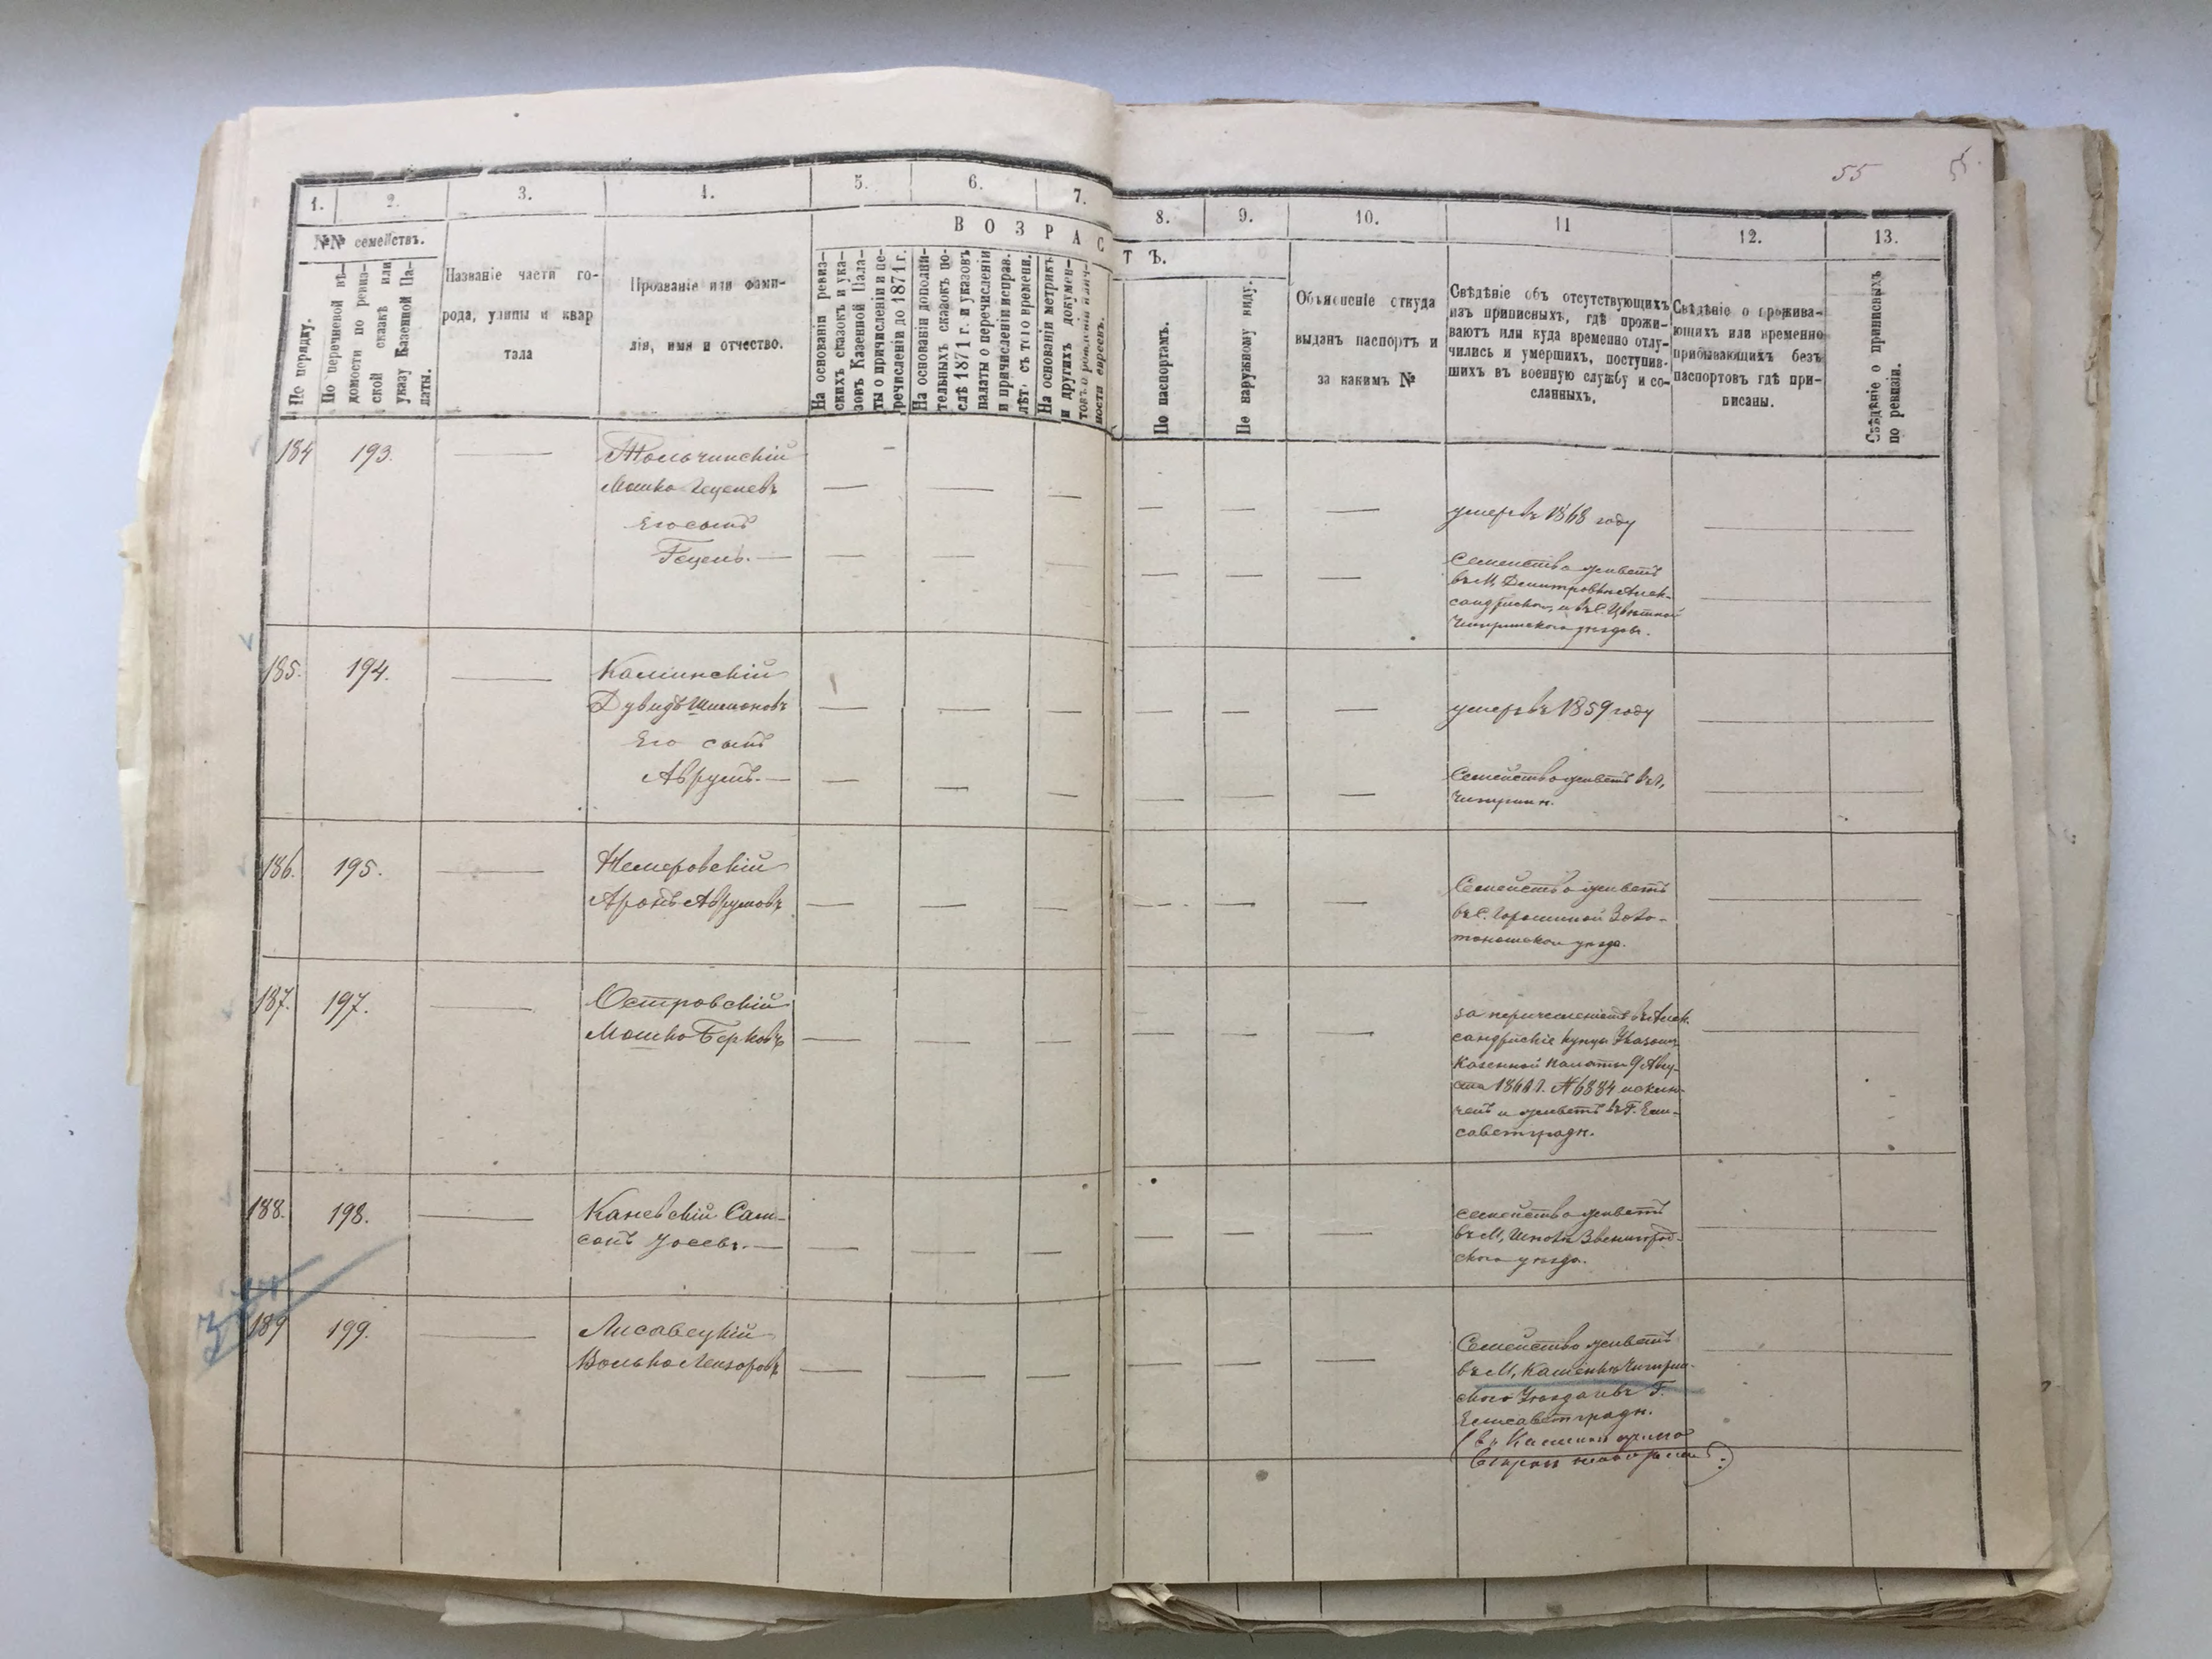 55
1.
2.
3.
4.
5.
6.
7.
8.
9.
10.
11
12.
13.
№№ семействъ.
По порядку.
По перечневой вѣ-
домости по ревиз-
ской сказкѣ или
указу Казенной Па-
латы.
Названіе части го-
рода, улицы и квар
тала
Прозваніе или фами-
лія, имя и отчество.
ВОЗРАС
ТЪ.
На основаніи ревиз-
скихъ сказокъ и ука-
зовъ Казенной Пала-
ты о причисленіи и пе-
речисленіи до 1871 г.
На основаніи дополни-
тельныхъ сказокъ по-
слѣ 1871 г. и указовъ
палаты о перечисленіи
и причисленіи исправ.
лѣт. съ того времени.
На основаніи метрикъ
и другихъ докумен-
товъ о рожденіи и лич-
ности евреевъ.
По паспортамъ.
По наружному виду.
Объясненіе откуда
выданъ паспортъ и
за какимъ №
Свѣдѣніе объ отсутствующихъ
изъ приписныхъ, гдѣ прожи-
ваютъ или куда временно отлу-
чились и умершихъ, поступив-
шихъ въ военную службу и со-
сланныхъ.
Свѣдѣніе о прожива-
ющихъ или временно
прибывающихъ безъ
паспортовъ гдѣ при-
писаны.
Свѣдѣніе о приписныхъ
по ревизіи.
184 193.
Тольчинскій
Мошко Гецелевъ
Его сынъ
Гецель. —
умеръ въ 1868 году
Семейство живетъ
въ М. Дмитровкѣ Алек-
сандрійск., и въ С. Цвѣтной
Чигринскаго уѣздовъ.
185. 194.
Каминскій
Дувидъ Шимоновъ
Его сынъ
Аврумъ. —
умеръ въ 1859 году
Семейство живетъ въ г.
Чигринѣ.
186. 195.
Немеровскій
Аронъ Аврумовъ
Семейство живетъ
въ С. Горошиной Золо-
тоношскаго уѣзда.
187. 197.
Островскій
Мошко Берковъ
за перечисленіемъ въ Алек-
сандрійскіе купцы Указомъ
Казенной палаты 9 Авгу-
ста г. № 6884 исклю-
ченъ и живетъ въ г. Ели-
саветградѣ.
188. 198.
Каневскій Сам-
сонъ Іосевъ. —
семейство живетъ
въ М. Шполѣ Звенигород-
скаго уѣзда.
189 199.
Лисавецкій
Волько Лейзоровъ
Семейство живетъ
въ М. Каменкѣ Чигрин-
скаго Уѣзда и въ Г.
Елисаветградѣ.